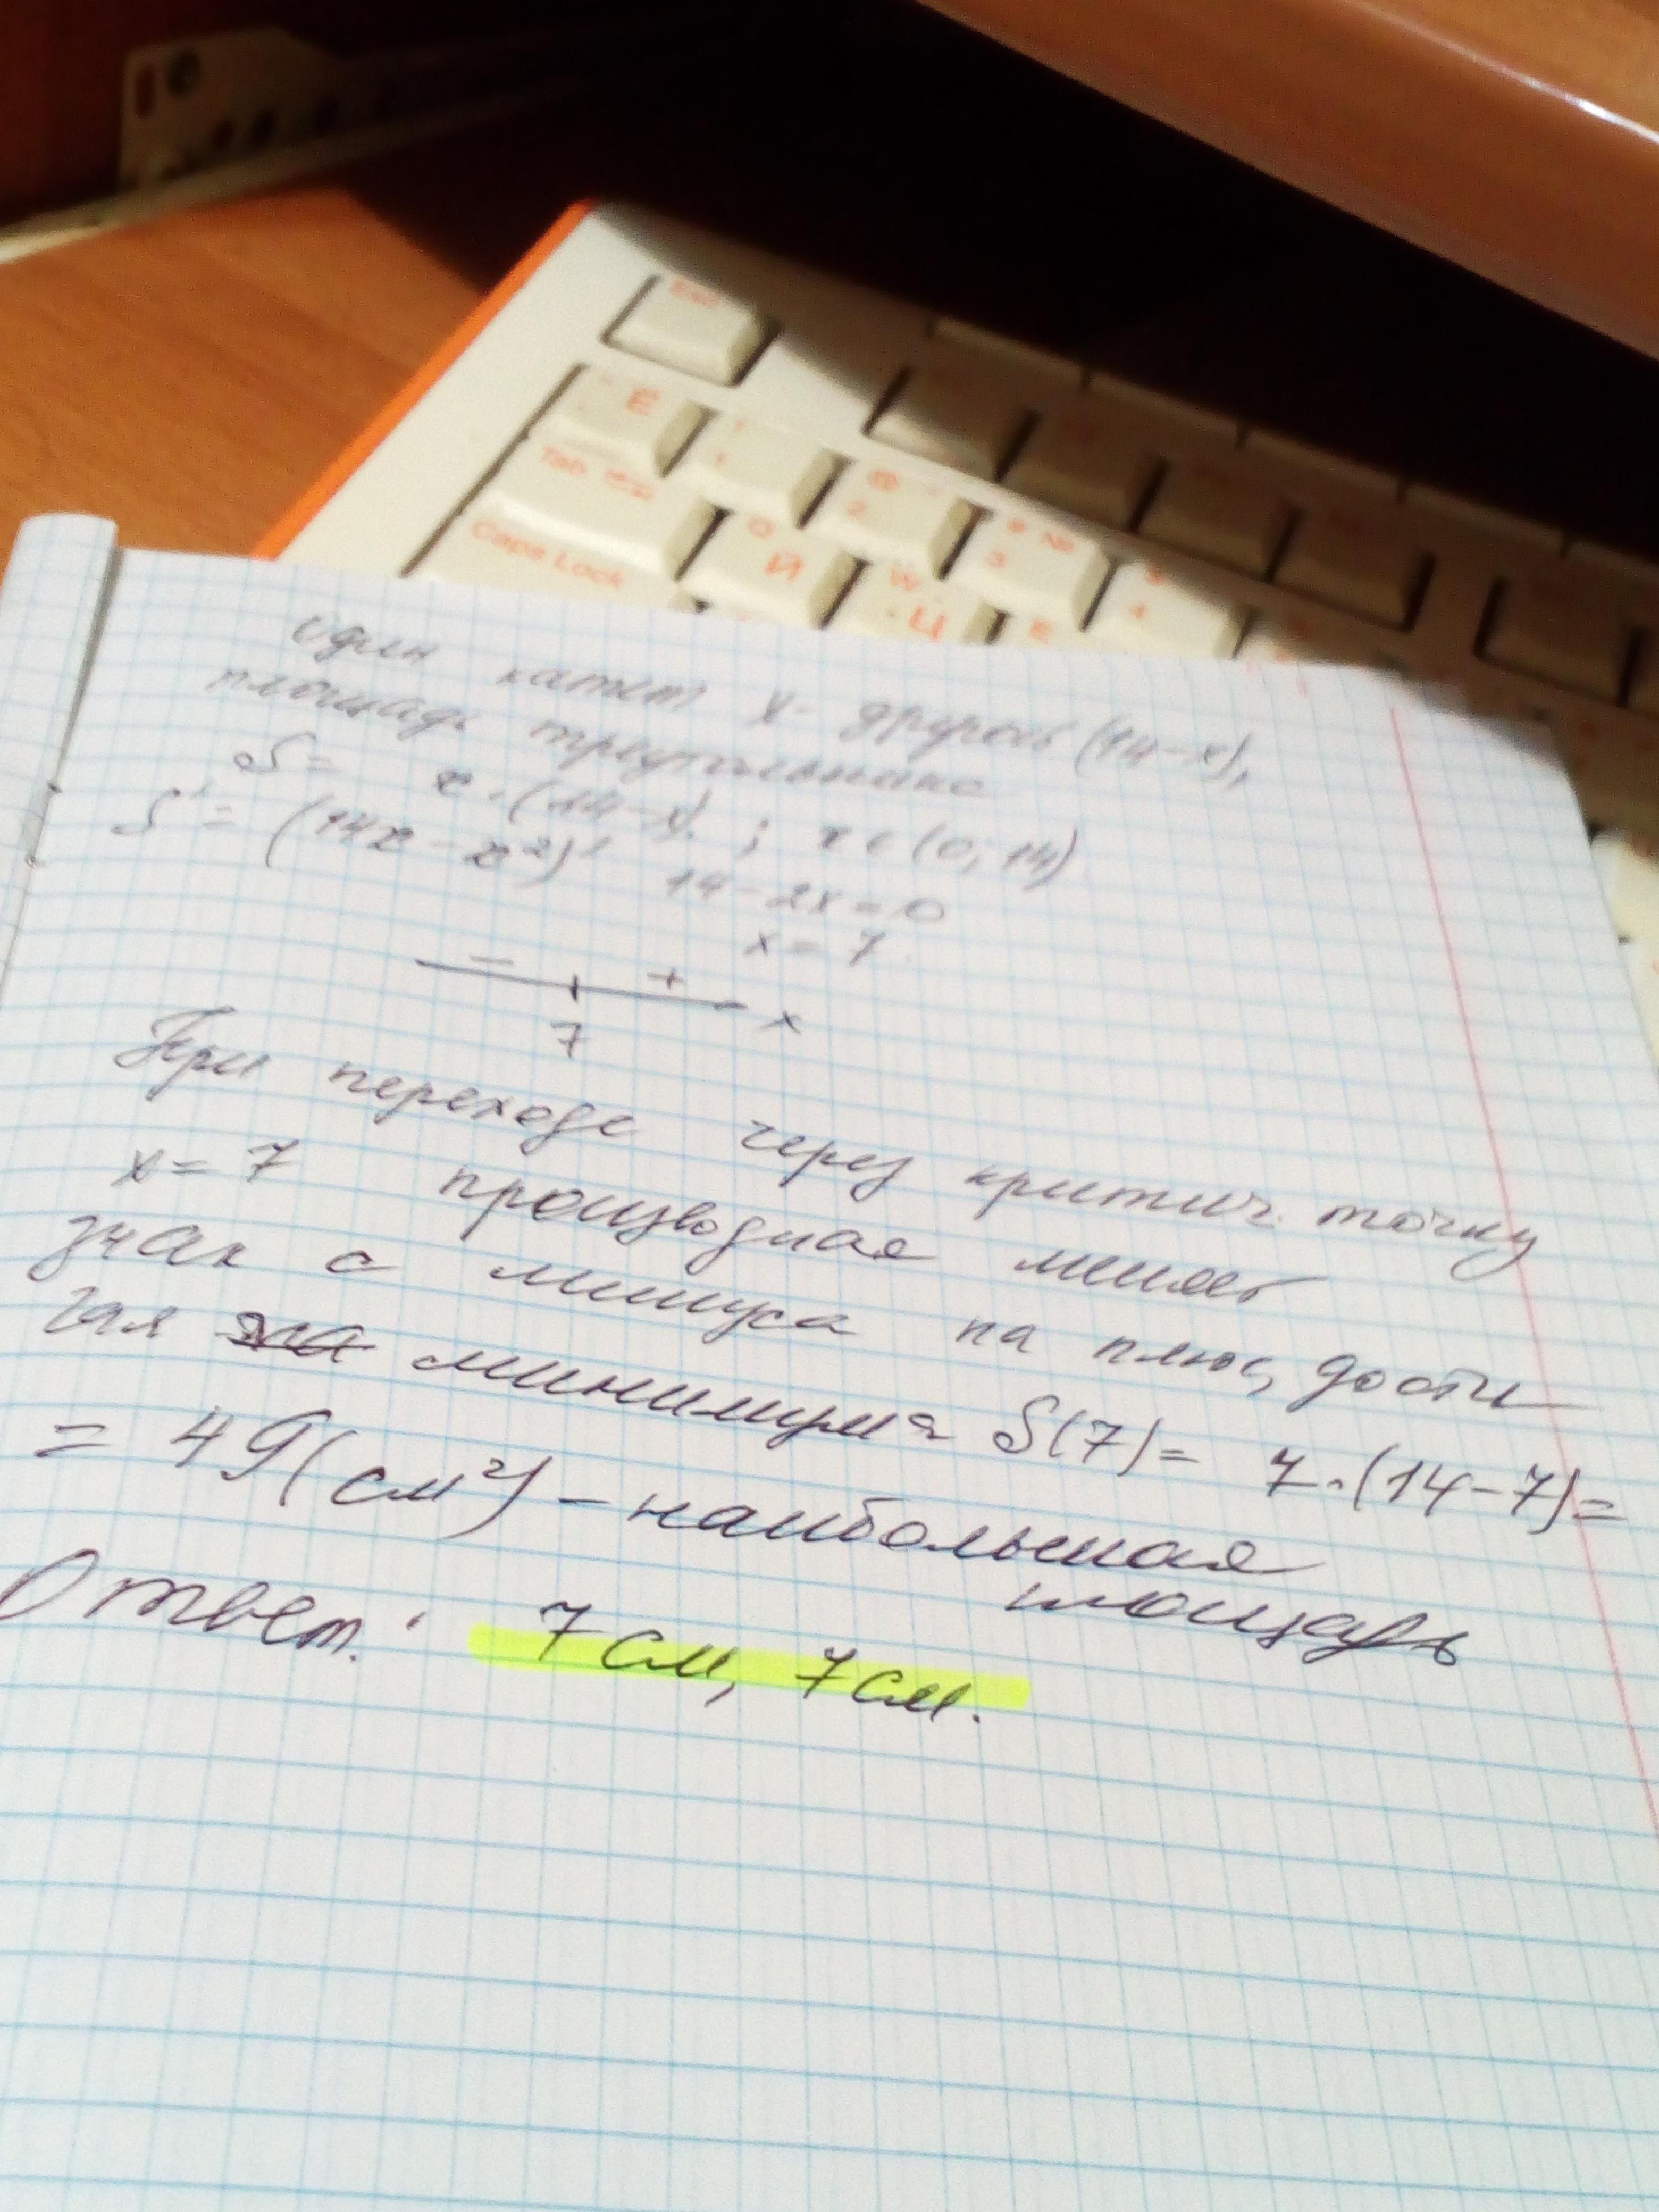 Esc
Ё
1
@
2
# №
3
4
Tab
Q
Й
W
Ц
E
Caps Lock
один катет x- другой (14-x),
площадь треугольника
S= x·(14-x) ; x∈(0; 14)
S'= (14x-x²)' 14-2x=0
x=7.
- +
7 x
При переходе через критич. точку
x=7 производная меняет
знак с минуса на плюс, дости
гая минимума S(7)= 7·(14-7)=
= 49(см²) - наибольшая
площадь
Ответ: 7см, 7см.